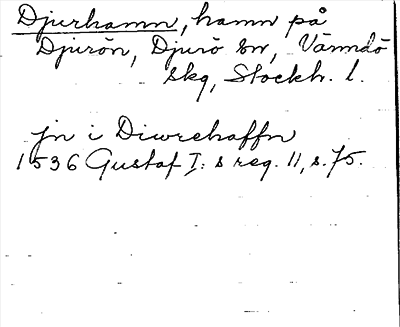 Djurhamn, hamn på
Djurön, Djurö sn, Värmdö
skg, Stockh. l.
jn i Diwrehaffn
1536 Gustaf I:s reg. 11, s. 75.